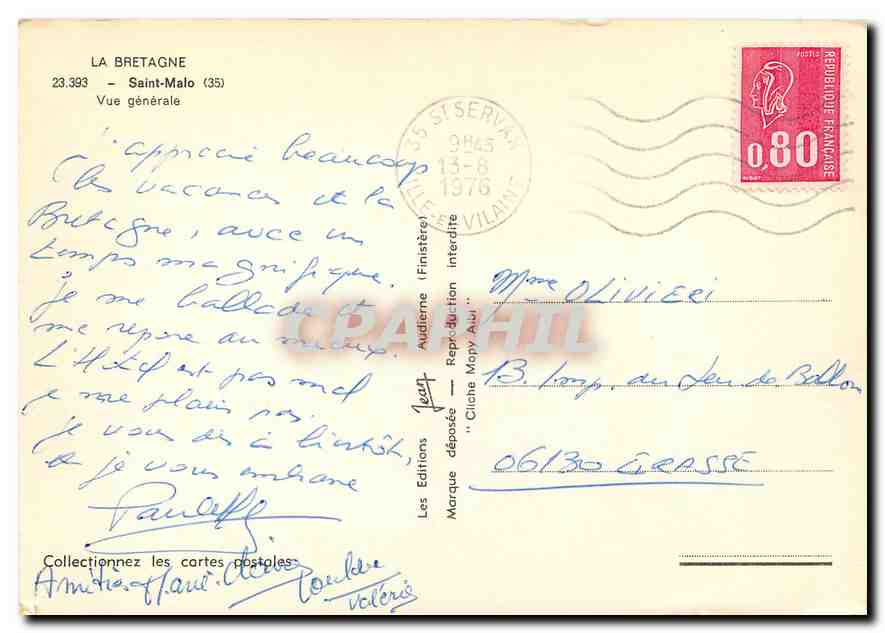 LA BRETAGNE
23.393 - Saint-Malo (35)
Vue générale
35 ST SERVAN
9H45
13-8
1976
ILLE-ET-VILAINE
POSTES
REPUBLIQUE FRANÇAISE
0,80
j'apprécie beaucoup
les vacances et la
Bretagne, avec un
temps magnifique.
je me ballade et
me repose au mieux.
L'Hotel est pas mal
je me plains pas.
je vous dis à bientôt,
et je vous embrasse
Paulette
Collectionnez les cartes postales
Amitiés
Valérie
Les Editions Jean Audierne (Finistère)
Marque déposée — Reproduction interdite
"Cliche Mopy Aibi"
CPAPHIL
Mme OLIVIERI
13. Imp. du Jeu de Ballon
06130 GRASSE